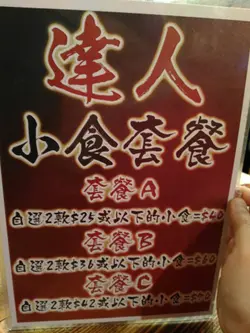 達人
小食套餐
套餐A
自選2款$25或以下的小食=$40
套餐B
自選2款$36或以下的小食=$60
套餐C
自選2款$42或以下的小食